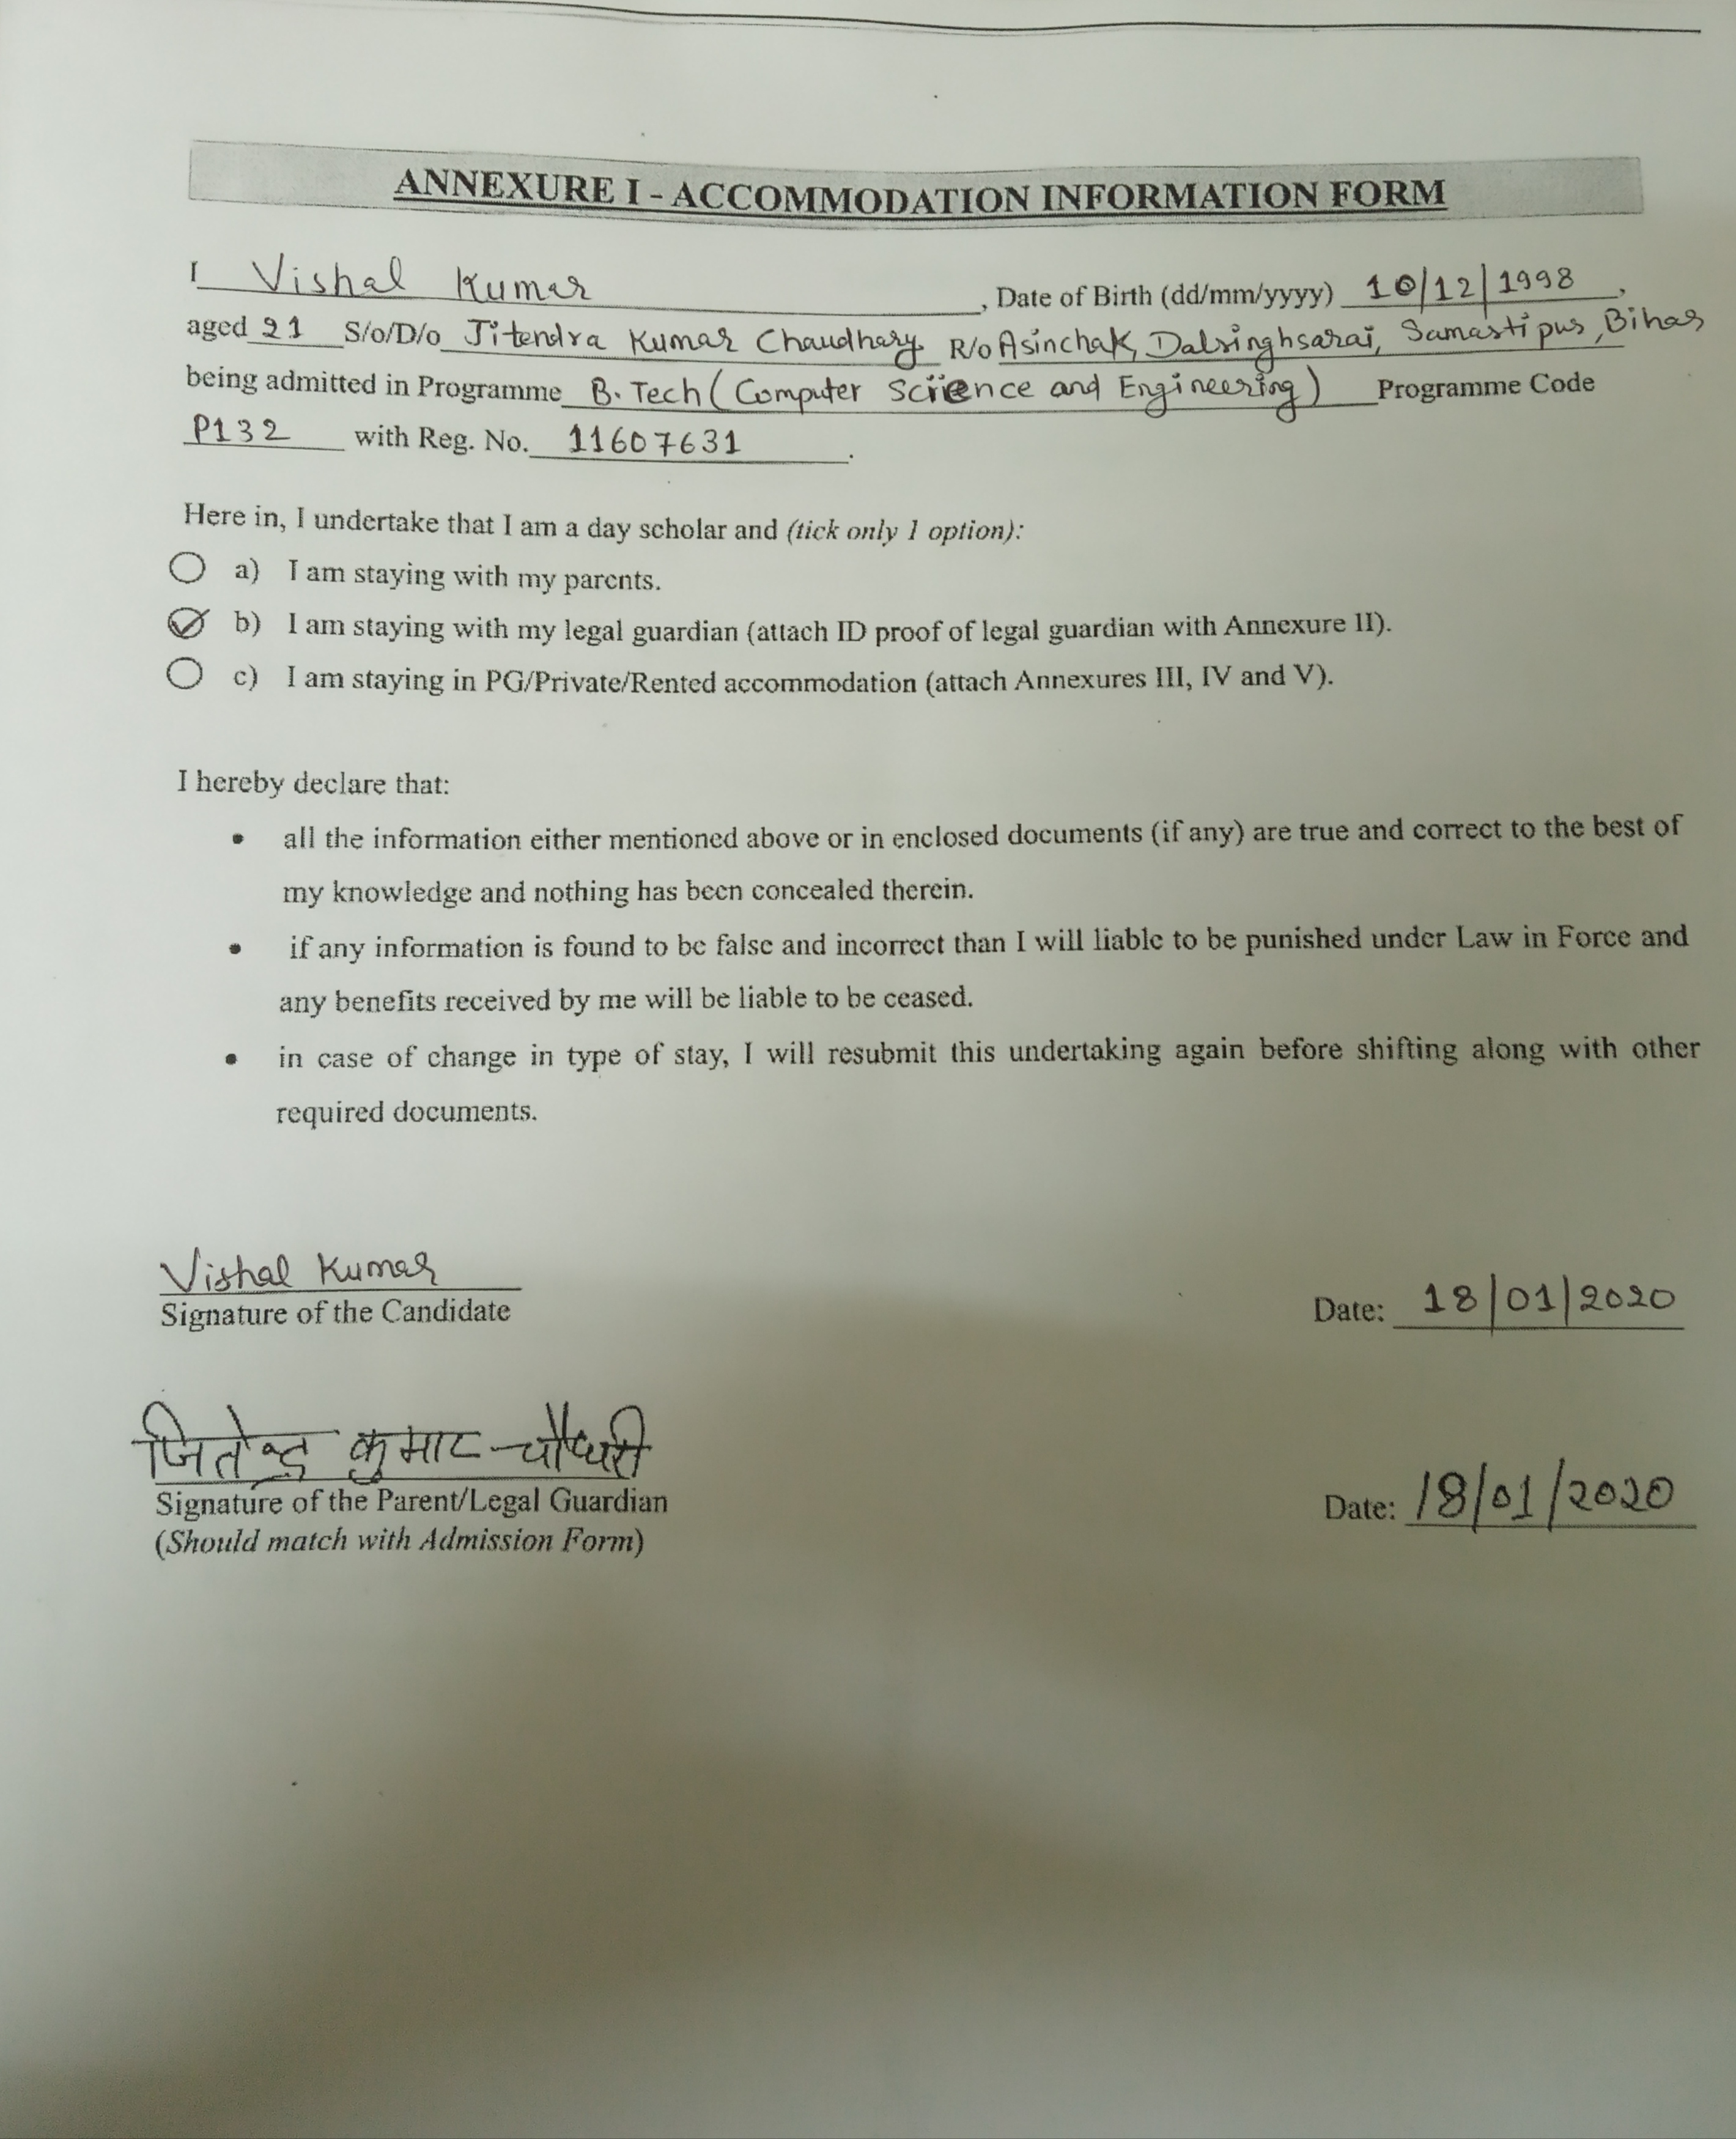 ANNEXURE I - ACCOMMODATION INFORMATION FORM
I Vishal Kumar, Date of Birth (dd/mm/yyyy) 10/12/1998,
aged 21 S/o/D/o Jitendra Kumar Chaudhary R/o Asinchak, Dalsinghsarai, Samastipur, Bihar
being admitted in Programme B.Tech (Computer Science and Engineering) Programme Code
P132 with Reg. No. 11607631.
Here in, I undertake that I am a day scholar and (tick only 1 option):
a) I am staying with my parents.
b) I am staying with my legal guardian (attach ID proof of legal guardian with Annexure II).
c) I am staying in PG/Private/Rented accommodation (attach Annexures III, IV and V).
I hereby declare that:
• all the information either mentioned above or in enclosed documents (if any) are true and correct to the best of
my knowledge and nothing has been concealed therein.
• if any information is found to be false and incorrect than I will liable to be punished under Law in Force and
any benefits received by me will be liable to be ceased.
• in case of change in type of stay, I will resubmit this undertaking again before shifting along with other
required documents.
Vishal Kumar
Signature of the Candidate
Date: 18/01/2020
जितेन्द्र कुमार चौधरी
Signature of the Parent/Legal Guardian
(Should match with Admission Form)
Date: 18/01/2020